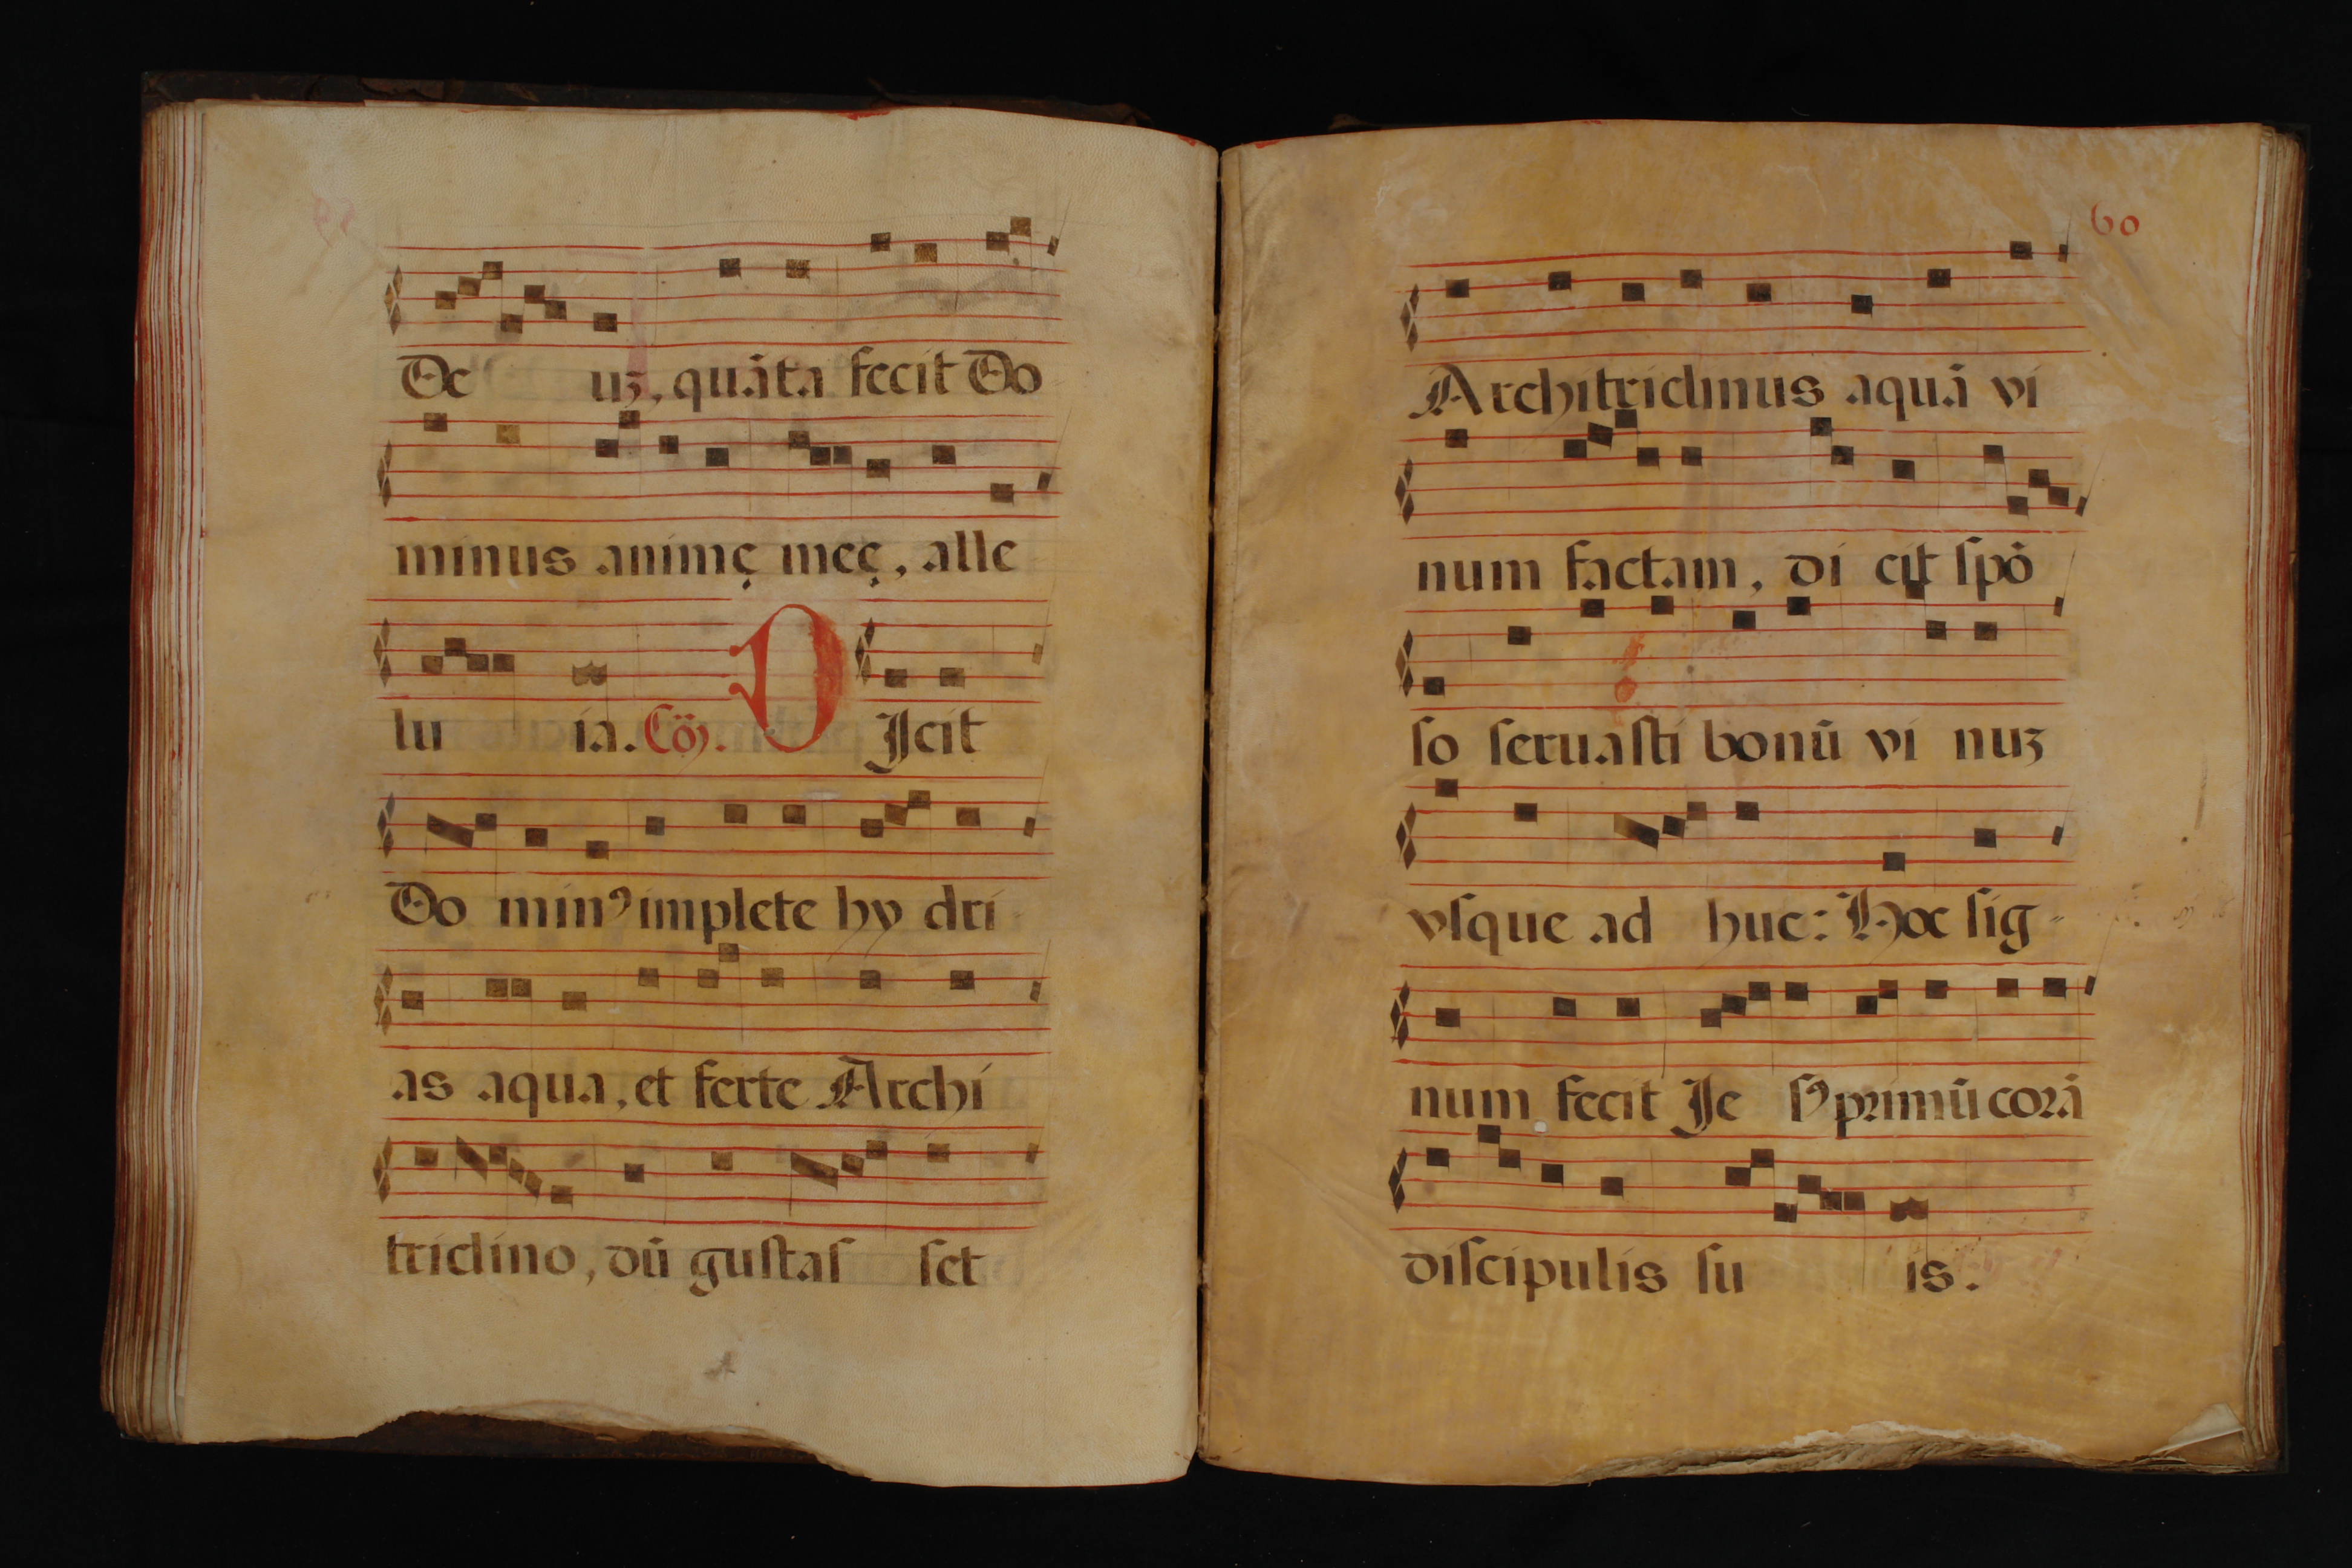 De uꝫ, quāta fecit Do
minus animę meę, alle
lu ia. Cō̃. D Jcit
Do minꝰ implete hy dri
as aqua, et ferte Archi
triclino, dū gustaſ ſet
60
Architriclinus aquā vi
num factam, di cit ſpō
ſo ſeruaſti bonū vi nuꝫ
vſque ad huc: Hoc ſig-
num fecit Je ſꝰ primū corā
diſcipulis ſu is.